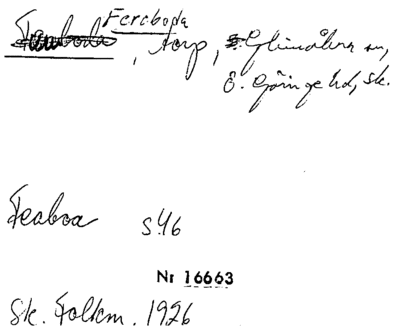 Fereboda
, torp, Glimåkra sn,
Ö. Göinge hd, Sk.
Feaboa s46
Nr 16663
Sk. Folkm. 1926